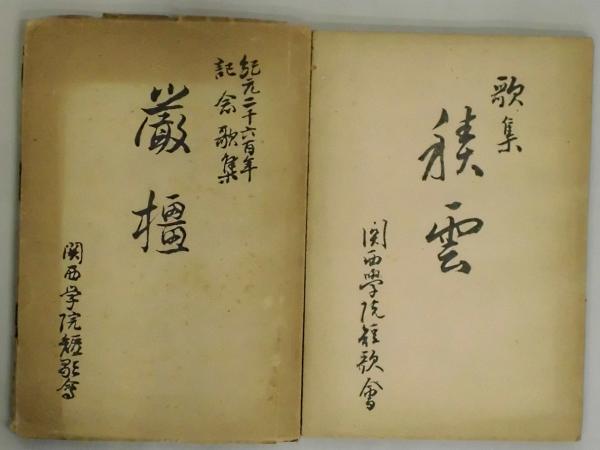 紀元二千六百年
記念歌集
厳橿
関西学院短歌會
歌集
積雲
関西學院短歌會